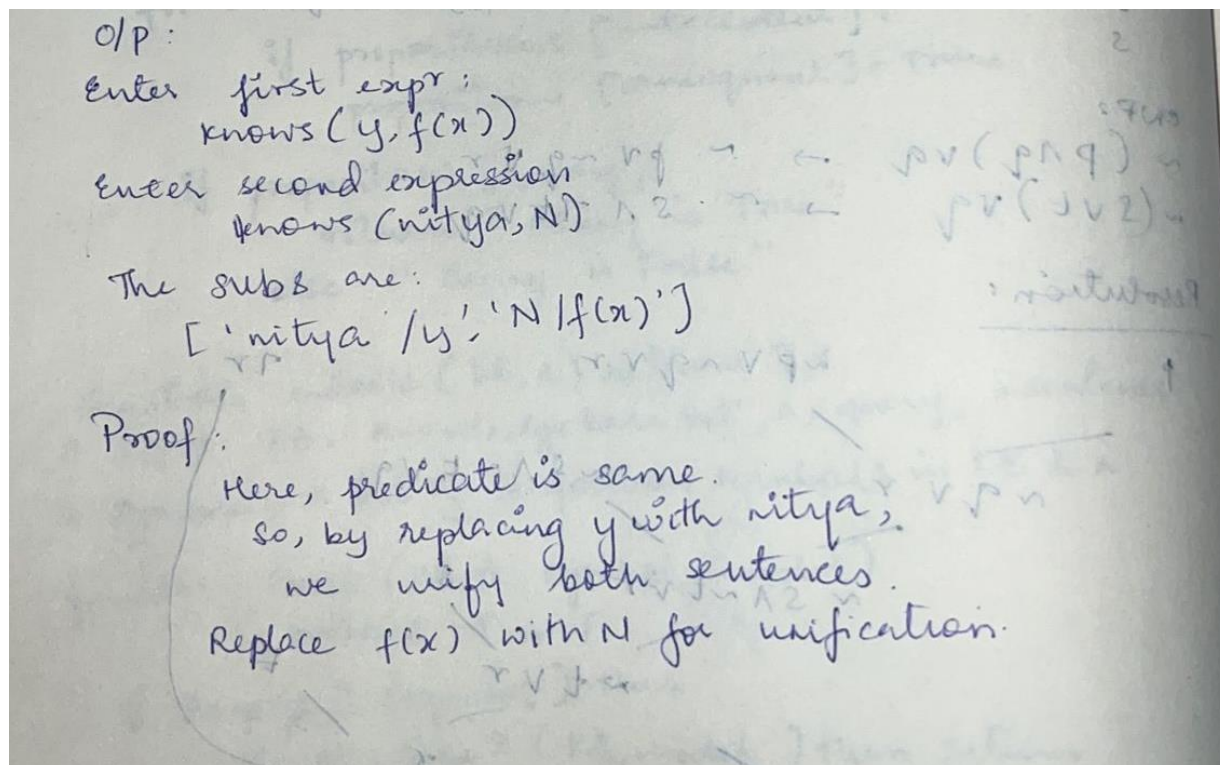 O/P :
Enter first expr :
knows (y, f(x))
Enter second expression
knows (nitya, N)
The subs are :
[ 'nitya / y', 'N / f(x)' ]
Proof :
Here, predicate is same.
so, by replacing y with nitya,
we unify both sentences.
Replace f(x) with N for unification.